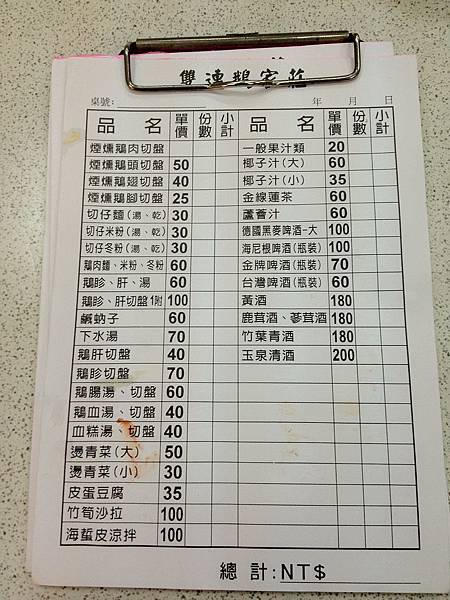 雙連鵝客莊
桌號: 年 月 日
品 名 單價 份數 小計 品 名 單價 份數 小計
煙燻鵝肉切盤 一般果汁類 20
煙燻鵝頭切盤 50 椰子汁(大) 60
煙燻鵝翅切盤 40 椰子汁(小) 35
煙燻鵝腳切盤 25 金線蓮茶 60
切仔麵(湯、乾) 30 蘆薈汁 60
切仔米粉(湯、乾) 30 德國黑麥啤酒-大 100
切仔冬粉(湯、乾) 30 海尼根啤酒(瓶裝) 100
鵝肉麵、米粉、冬粉 60 金牌啤酒(瓶裝) 70
鵝胗、肝、湯 60 台灣啤酒(瓶裝) 60
鵝胗、肝切盤1附 100 黃酒 180
鹹蚋子 60 鹿茸酒、蔘茸酒 180
下水湯 70 竹葉青酒 180
鵝肝切盤 40 玉泉清酒 200
鵝胗切盤 70
鵝腸湯、切盤 60
鵝血湯、切盤 40
血糕湯、切盤 40
燙青菜(大) 50
燙青菜(小) 30
皮蛋豆腐 35
竹筍沙拉 100
海蜇皮涼拌 100
總 計:NT$